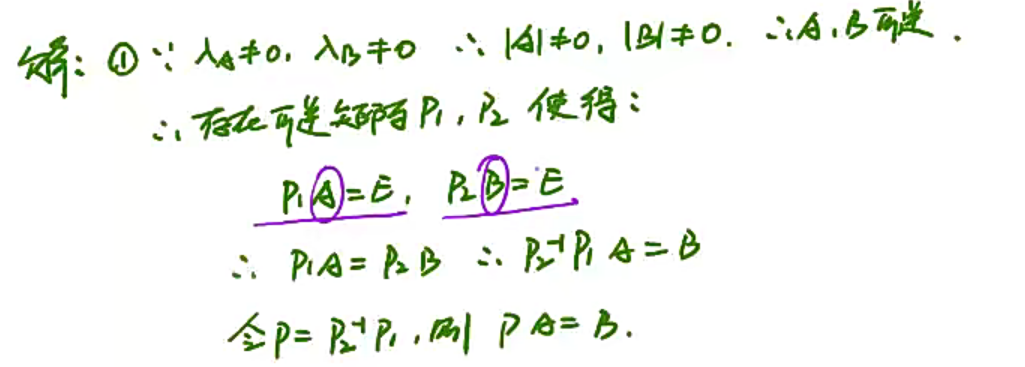 解: ① ∵ λA≠0, λB≠0 ∴ |A|≠0, |B|≠0. ∴ A, B 可逆.
∴ 存在可逆矩阵 P₁, P₂ 使得:
P₁A=E, P₂B=E.
∴ P₁A=P₂B ∴ P₂⁻¹P₁A=B
令P=P₂⁻¹P₁, 则 PA=B.